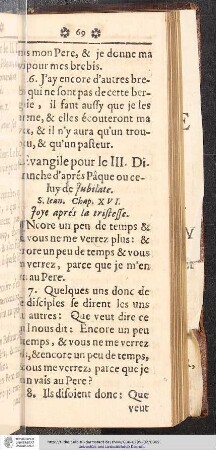 69
mon Pere, & je donne ma
pour mes brebis.
6. J'ay encore d'autres bre-
qui ne sont pas de cette ber-
il faut aussy que je les
& elles écouteront ma
& il n'y aura qu'un trou-
& qu'un pasteur.
Evangile pour le III. Di-
manche d'aprés Pâque ou ce-
luy de Jubilate.
S. Iean. Chap. XVI.
Joye aprés la tristesse.
Ncore un peu de temps &
vous ne me verrez plus: &
core un peu de temps & vous
verrez, parce que je m'en
au Pere.
7. Quelques uns donc de
disciples se dirent les uns
autres: Que veut dire ce
il nous dit: Encore un peu
temps, & vous ne me verrez
, & encore un peu de temps,
vous me verrez parce que je
en vais au Pere?
8. Ils disoient donc: Que
veut